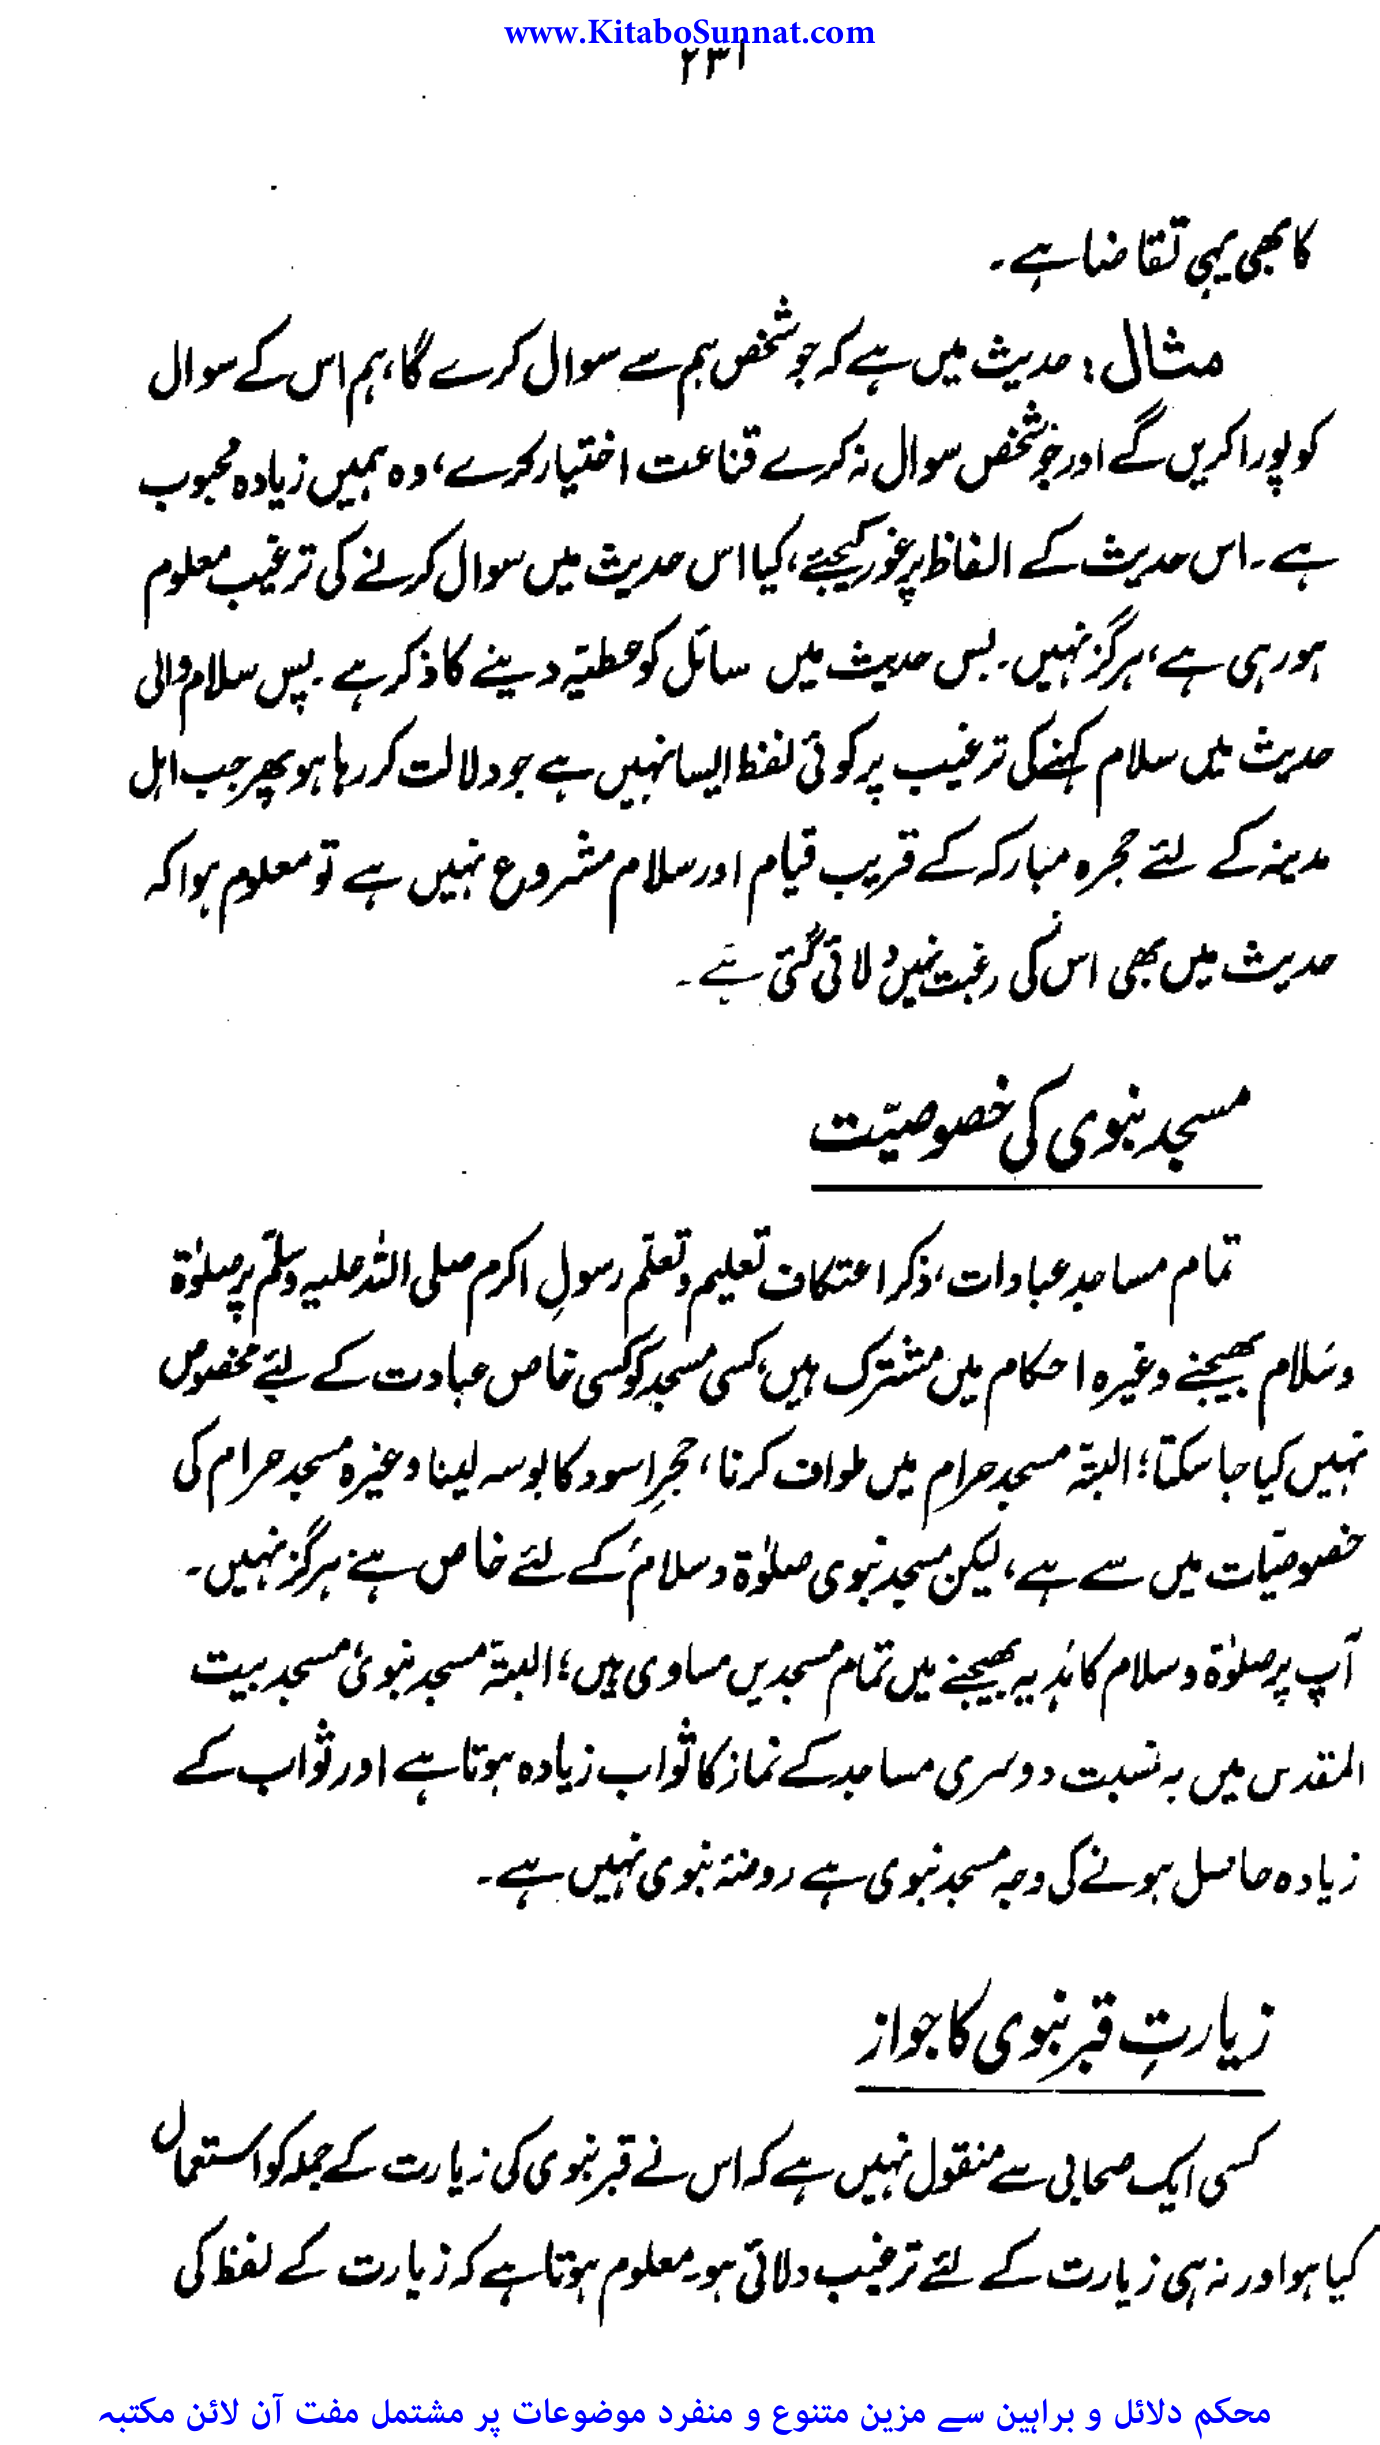 www.KitaboSunnat.com
۲۳۱
کا بھی یہی تقاضا ہے۔
مثال: حدیث میں ہے کہ جو شخص ہم سے سوال کرے گا، ہم اس کے سوال
کو پورا کریں گے اور جو شخص سوال نہ کرے قناعت اختیار کرے، وہ ہمیں زیادہ محبوب
ہے۔ اس حدیث کے الفاظ پر غور کیجئے، کیا اس حدیث میں سوال کرنے کی ترغیب معلوم
ہو رہی ہے، ہرگز نہیں۔ بس حدیث میں سائل کو عطیّہ دینے کا ذکر ہے۔ پس سلام والی
حدیث میں سلام کہنے کی ترغیب پر کوئی لفظ ایسا نہیں ہے جو دلالت کر رہا ہو پھر جب اہل
مدینہ کے لئے حجرہ مبارکہ کے قریب قیام اور سلام مشروع نہیں ہے تو معلوم ہوا کہ
حدیث میں بھی اس کی رغبت نہیں دلائی گئی ہے۔
مسجد نبوی کی خصوصیّت
تمام مساجد عبادات، ذکر اعتکاف تعلیم و تعلّم رسولِ اکرم صلی اللہ علیہ وسلّم پر صلوٰۃ
وسلام بھیجنے وغیرہ احکام میں مشترک ہیں، کسی مسجد کو کسی خاص عبادت کے لئے مخصوص
نہیں کیا جا سکتا؛ البتہ مسجد حرام میں طواف کرنا، حجرِ اسود کا بوسہ لینا وغیرہ مسجد حرام کی
خصوصیّات میں سے ہے، لیکن مسجد نبوی صلوٰۃ وسلام کے لئے خاص ہے؟ ہرگز نہیں۔
آپ پر صلوٰۃ وسلام کا ہدیہ بھیجنے میں تمام مسجدیں مساوی ہیں؛ البتہ مسجد نبوی، مسجد بیت
المقدس میں بہ نسبت دوسری مساجد کے نماز کا ثواب زیادہ ہوتا ہے اور ثواب کے
زیادہ حاصل ہونے کی وجہ مسجد نبوی ہے روضۂ نبوی نہیں ہے۔
زیارتِ قبر نبوی کا جواز
کسی ایک صحابی سے منقول نہیں ہے کہ اس نے قبر نبوی کی زیارت کے جملہ کو استعمال
کیا ہو اور نہ ہی زیارت کے لئے ترغیب دلائی ہو۔ معلوم ہوتا ہے کہ زیارت کے لفظ کی
محکم دلائل و براہین سے مزین متنوع و منفرد موضوعات پر مشتمل مفت آن لائن مکتبہ